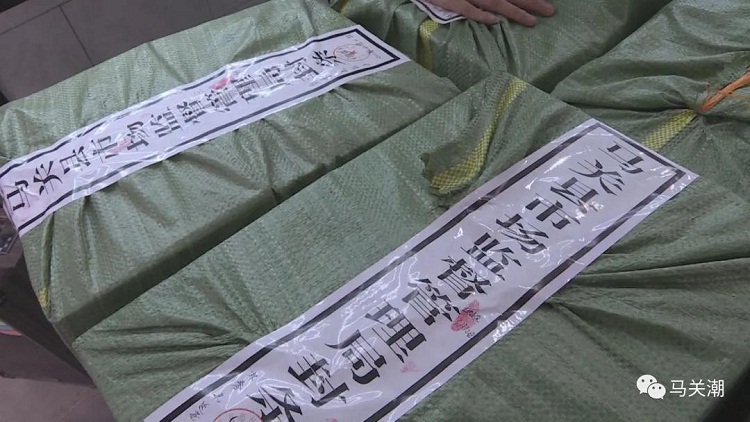 马关县市场监督管理局封条
马关县市场监督管理局封条
马关潮